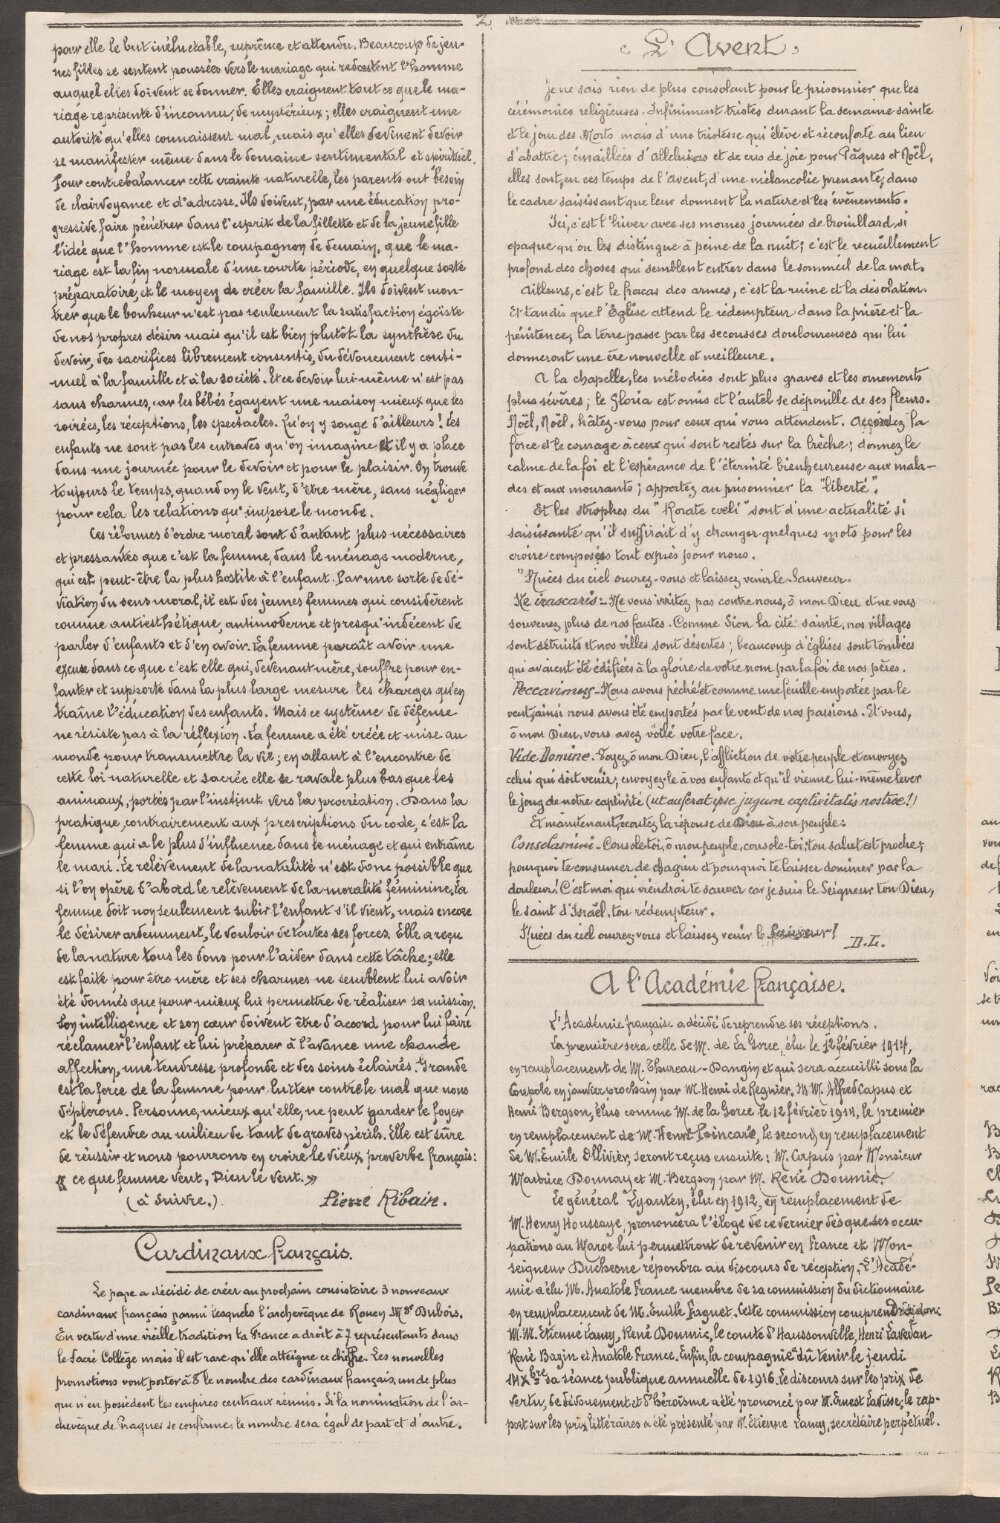 2
pour elle le but inéluctable, suprême et attendu. Beaucoup de jeu-
nes filles se sentent poussées vers le mariage qui redoutent l'homme
auquel elles doivent se donner. Elles craignent tout ce que le ma-
riage représente d'inconnu, de mystérieux ; elles craignent une
autorité qu'elles connaissent mal, mais qu'elles devinent devoir
se manifester même dans le domaine sentimental et spirituel.
Pour contrebalancer cette crainte naturelle, les parents ont besoin
de clairvoyance et d'adresse. Ils doivent, par une éducation pro-
gressive faire pénétrer dans l'esprit de la fillette et de la jeune fille
l'idée que l'homme est le compagnon de demain, que le ma-
riage est la fin normale d'une courte période, en quelque sorte
préparatoire, et le moyen de créer la famille. Ils doivent mon-
trer que le bonheur n'est pas seulement la satisfaction égoïste
de nos propres désirs mais qu'il est bien plutôt la synthèse du
devoir, des sacrifices librement consentis, du dévouement conti-
nuel à la famille et à la société. Et ce devoir lui-même n'est pas
sans charmes, car les bébés égayent une maison mieux que les
soirées, les réceptions, les spectacles. Qu'on y songe d'ailleurs ! les
enfants ne sont pas les entraves qu'on imagine et il y a place
dans une journée pour le devoir et pour le plaisir. On trouve
toujours le temps, quand on le veut, d'être mère, sans négliger
pour cela les relations qu'impose le monde.
Ces réformes d'ordre moral sont d'autant plus nécessaires
et pressantes que c'est la femme, dans le ménage moderne,
qui est peut-être la plus hostile à l'enfant. Par une sorte de dé-
viation du sens moral, il est des jeunes femmes qui considèrent
comme antiesthétique, antimoderne et presqu'indécent de
parler d'enfants et d'en avoir. La femme paraît avoir une
excuse dans ce que c'est elle qui, devenant mère, souffre pour en-
fanter et supporte dans la plus large mesure les charges qu'en
traîne l'éducation des enfants. Mais ce système de défense
ne résiste pas à la réflexion. La femme a été créée et mise au
monde pour transmettre la vie ; en allant à l'encontre de
cette loi naturelle et sacrée elle se ravale plus bas que les
animaux, portés par l'instinct vers la procréation. Dans la
pratique, contrairement aux prescriptions du code, c'est la
femme qui a le plus d'influence dans le ménage et qui entraîne
le mari. Le relèvement de la natalité n'est donc possible que
si l'on opère d'abord le relèvement de la moralité féminine. La
femme doit non seulement subir l'enfant s'il vient, mais encore
le désirer ardemment, le vouloir de toutes ses forces. Elle a reçu
de la nature tous les dons pour l'aider dans cette tâche ; elle
est faite pour être mère et ses charmes ne semblent lui avoir
été donnés que pour mieux lui permettre de réaliser sa mission.
Son intelligence et son cœur doivent être d'accord pour lui faire
réclamer l'enfant et lui préparer à l'avance une chaude
affection, une tendresse profonde et des soins éclairés. Grande
est la force de la femme pour lutter contre le mal que nous
déplorons. Personne, mieux qu'elle, ne peut garder le foyer
et le défendre au milieu de tant de graves périls. Elle est sûre
de réussir et nous pourrons en croire le vieux proverbe français :
« ce que femme veut, Dieu le veut. »
(à suivre.) Pierre Ribain.
Cardinaux français.
Le pape a décidé de créer au prochain consistoire 3 nouveaux
cardinaux français parmi lesquels l'archevêque de Rouen Mgr Dubois.
En vertu d'une vieille tradition la France a droit à 7 représentants dans
le Sacré Collège mais il est rare qu'elle atteigne ce chiffre. Les nouvelles
promotions vont porter à 8 le nombre des cardinaux français, un de plus
qu'n'en possèdent les empires centraux réunis. Si la nomination de l'ar-
chevêque de Prague se confirme, le nombre sera égal de part et d'autre.
L'Avent.
Je ne sais rien de plus consolant pour le prisonnier que les
cérémonies religieuses. Infiniment tristes durant la semaine sainte
et le jour des Morts mais d'une tristesse qui élève et réconforte au lieu
d'abattre ; émaillées d'alleluias et de cris de joie pour Pâques et Noël,
elles sont, en ces temps de l'avent, d'une mélancolie prenante, dans
le cadre saisissant que leur donnent la nature et les événements.
Ici, c'est l'hiver avec ses mornes journées de brouillard, si
opaque qu'on les distingue à peine de la nuit ; c'est le recueillement
profond des choses qui semblent entrer dans le sommeil de la mort.
Ailleurs, c'est le fracas des armes, c'est la ruine et la désolation.
Et tandis que l'Eglise attend le rédempteur dans la prière et la
pénitence, la terre passe par les secousses douloureuses qui lui
donneront une ère nouvelle et meilleure.
A la chapelle, les mélodies sont plus graves et les ornements
plus sévères ; le Gloria est omis et l'autel se dépouille de ses fleurs.
Noël, Noël, hâtez-vous pour ceux qui vous attendent. Accordez la
force et le courage à ceux qui sont restés sur la brèche ; donnez le
calme de la foi et l'espérance de l'éternité bienheureuse aux mala-
des et aux mourants ; apportez au prisonnier la "liberté".
Et les strophes du "Rorate cœli" sont d'une actualité si
saisissante qu'il suffirait d'y changer quelques mots pour les
croire composées tout exprès pour nous.
"Nuées du ciel ouvrez-vous et laissez venir le Sauveur.
Ne irascaris - Ne vous irritez pas contre nous, ô mon Dieu et ne vous
souvenez plus de nos fautes. Comme Sion la cité sainte, nos villages
sont détruits et nos villes sont désertes ; beaucoup d'églises sont tombées
qui avaient été édifiées à la gloire de votre nom par la foi de nos pères.
Peccavimus - Nous avons péché et comme une feuille emportée par le
vent, ainsi nous avons été emportés par le vent de nos passions. Et vous,
ô mon Dieu, vous avez voilé votre face.
Vide Domine - Voyez, ô mon Dieu, l'affliction de votre peuple et envoyez
celui qui doit venir ; envoyez-le à vos enfants et qu'il vienne lui-même lever
le joug de notre captivité (ut auferat ipse jugum captivitatis nostræ !)
Et maintenant, écoutez la réponse de Dieu à son peuple :
Consolamini - Console-toi, ô mon peuple, console-toi : ton salut est proche ;
pourquoi te consumer de chagrin et pourquoi te laisser dominer par la
douleur ! C'est moi qui viendrai te sauver car je suis le Seigneur ton Dieu,
le saint d'Israël, ton rédempteur.
Nuées du ciel ouvrez-vous et laissez venir le Sauveur !
D.L.
A l'Académie française.
L'Académie français. a décidé de reprendre ses réceptions.
La première sera celle de M. de La Gorce, élu le 12 février 1914,
en remplacement de M. Thureau-Dangin et qui sera accueilli sous la
Coupole en janvier prochain par M. Henri de Régnier. MM. Alfred Capus et
Henri Bergson, élus comme M. de la Gorce le 12 février 1914, le premier
en remplacement de M. Henri Poincaré, le second en remplacement
de M. Emile Ollivier, seront reçus ensuite : M. Capus par Monsieur
Maurice Donnay et M. Bergson par M. René Doumic.
Le général Lyautey, élu en 1912, en remplacement de
M. Henry Houssaye, prononcera l'éloge de ce dernier dès que ses occu-
pations au Maroc lui permettront de revenir en France et Mon-
seigneur Duchesne répondra au discours de réception. L'Acadé-
mie a élu M. Anatole France membre de sa commission du dictionnaire
en remplacement de M. Emile Faguet. Cette commission comprend donc
M.M. Etienne Lamy, René Doumic, le comte d'Haussonville, Henri Lavedan
René Bazin et Anatole France. Enfin, la compagnie a dû tenir le jeudi
14 Xbre sa séance publique annuelle de 1916. Le discours sur les prix de
vertu, de dévouement et d'héroïsme a été prononcé par M. Ernest Lavisse, le rap-
port sur les prix littéraires a été présenté par M. Etienne Lamy, secrétaire perpétuel.